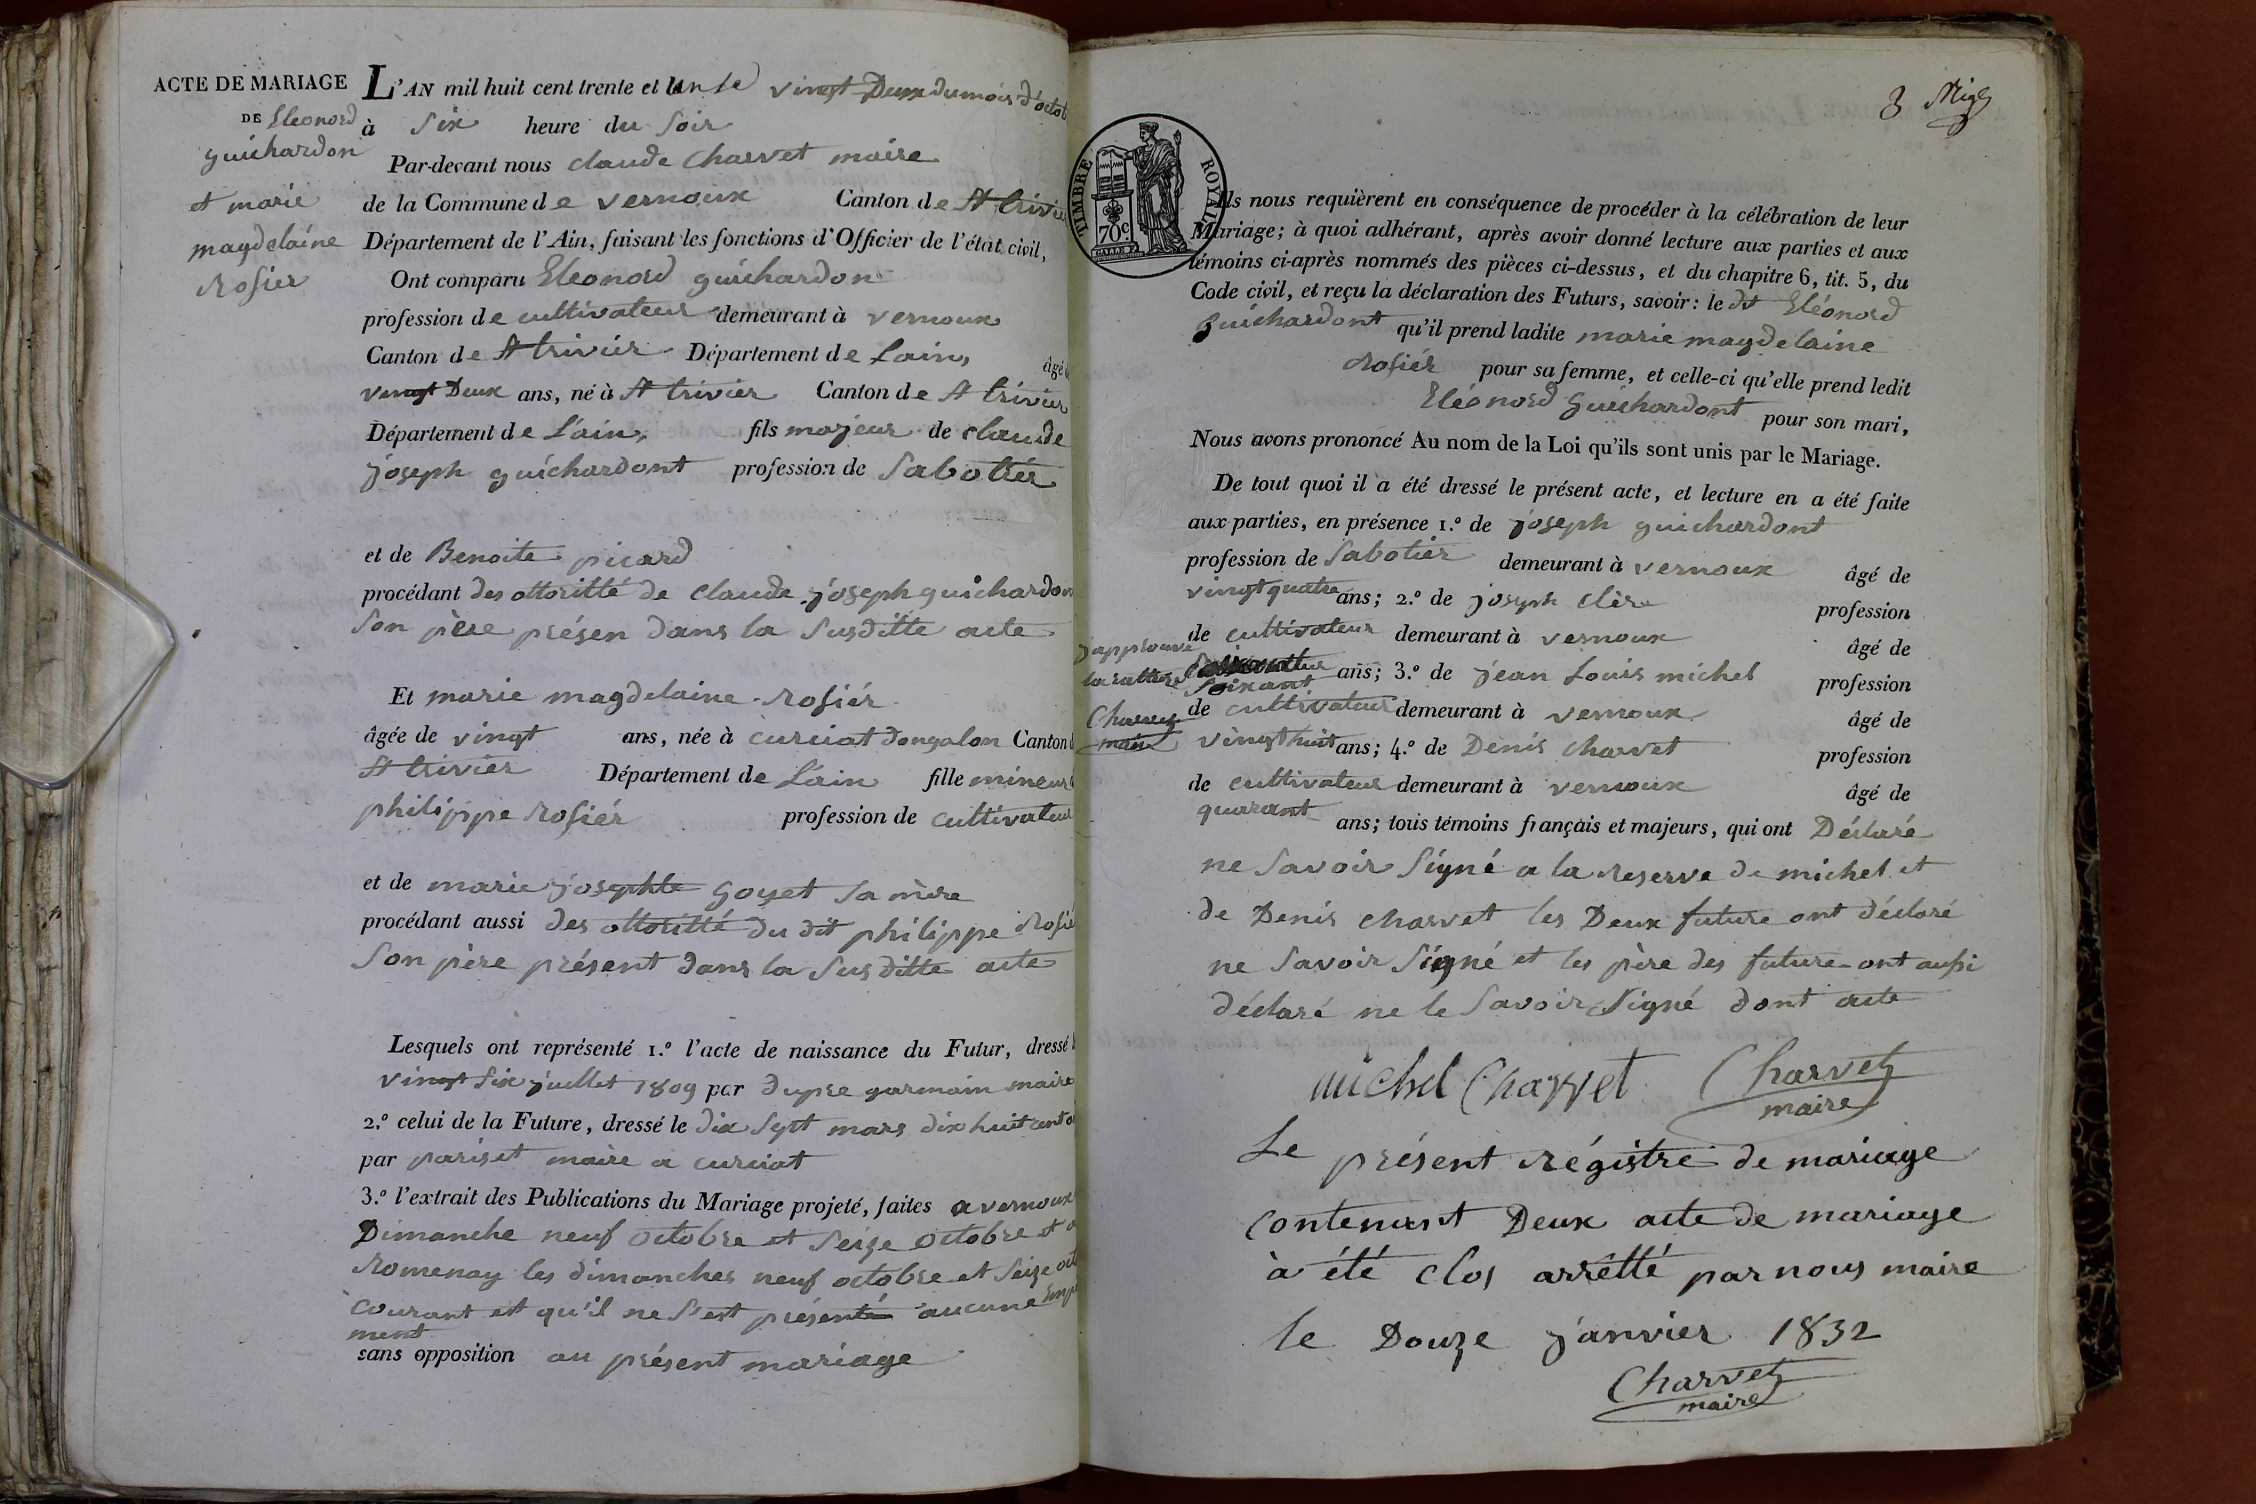 ACTE DE MARIAGE
DE Eleonord
guichardon
et marie
magdelaine
Rosier
L'AN mil huit cent trente et un le vingt Deux du mois d'octob
à six heure du soir
Par-devant nous claude Charvet maire
de la Commune de vernoux Canton de St trivier
Département de l'Ain, faisant les fonctions d'Officier de l'état civil,
Ont comparu Eleonord guichardon
profession de cultivateur demeurant à vernoux
Canton de St triviér Département de Lain, âgé d
vingt Deux ans, né à St trivier Canton de St trivier
Département de L'ain, fils majeur de claude
joseph guichardont profession de Sabotiér
et de Benoite picard
procédant des ottoritté de claude joseph guichardon
Son père présen dans la Susditte acte
Et marie magdelaine Rosiér
âgée de vingt ans, née à curciat dongalon Canton d
St trivier Département de L'ain fille mineur
philippe Rosiér profession de cultivateur
et de marie josephte Goyet sa mère
procédant aussi des ottoritté du dit philippe Rosié
Son père présent dans la Susditte acte
Lesquels ont représenté 1.º l'acte de naissance du Futur, dressé l
vingt Six juillet 1809 par dupre garmain maire
2.º celui de la Future, dressé le dix Sept mars dix huit cent o
par pariset maire a curciat
3.º l'extrait des Publications du Mariage projeté, faites a vernoux
Dimanche neuf octobre et Seize octobre et a
Romenay les dimanches neuf octobre et Seize oct
courant et qu'il ne s'est présenté aucune Empe
ment
sans opposition au présent mariage
3
TIMBRE ROYAL
70 c
Ils nous requièrent en conséquence de procéder à la célébration de leur
Mariage; à quoi adhérant, après avoir donné lecture aux parties et aux
témoins ci-après nommés des pièces ci-dessus, et du chapitre 6, tit. 5, du
Code civil, et reçu la déclaration des Futurs, savoir: le dt Eléonord
guichardont qu'il prend ladite marie magdelaine
Rosiér pour sa femme, et celle-ci qu'elle prend ledit
Eléonord Guichardont pour son mari,
Nous avons prononcé Au nom de la Loi qu'ils sont unis par le Mariage.
De tout quoi il a été dressé le présent acte, et lecture en a été faite
aux parties, en présence 1.º de joseph guichardont
profession de Sabotier demeurant à vernoux âgé de
vingt quatre ans; 2.º de joseph clère profession
de cultivateur demeurant à vernoux âgé de
Soixant ans; 3.º de jean Louis michel profession
japprouve
la rature
Charvet
maire
de cultivateur demeurant à vernoux âgé de
vingt huit ans; 4.º de Denis Charvet profession
de cultivateur demeurant à vernoux âgé de
quarant ans; tous témoins français et majeurs, qui ont Déclaré
ne Savoir Signé a la reserve de michel et
de Denis charvet les Deux future ont déclaré
ne Savoir Signé et les père des future ont aussi
déclaré ne le Savoir Signé dont acte
michel Charvet Charvet
maire
Le présent régistre de mariage
contenant Deux acte de mariage
à été clos arretté par nous maire
le Douze janvier 1832
Charvet
maire